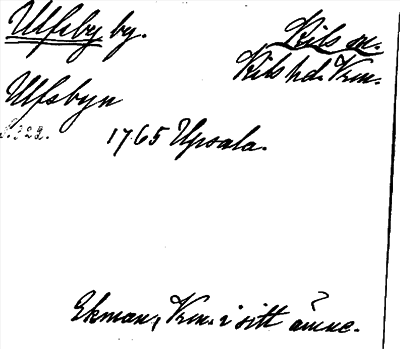 Ulfsby by.
Kils sn.
Kils hd. Vrm.
Ulfsbyn
S. 322.
1765 Upsala.
Ekman, Vrm. i sitt ämne.